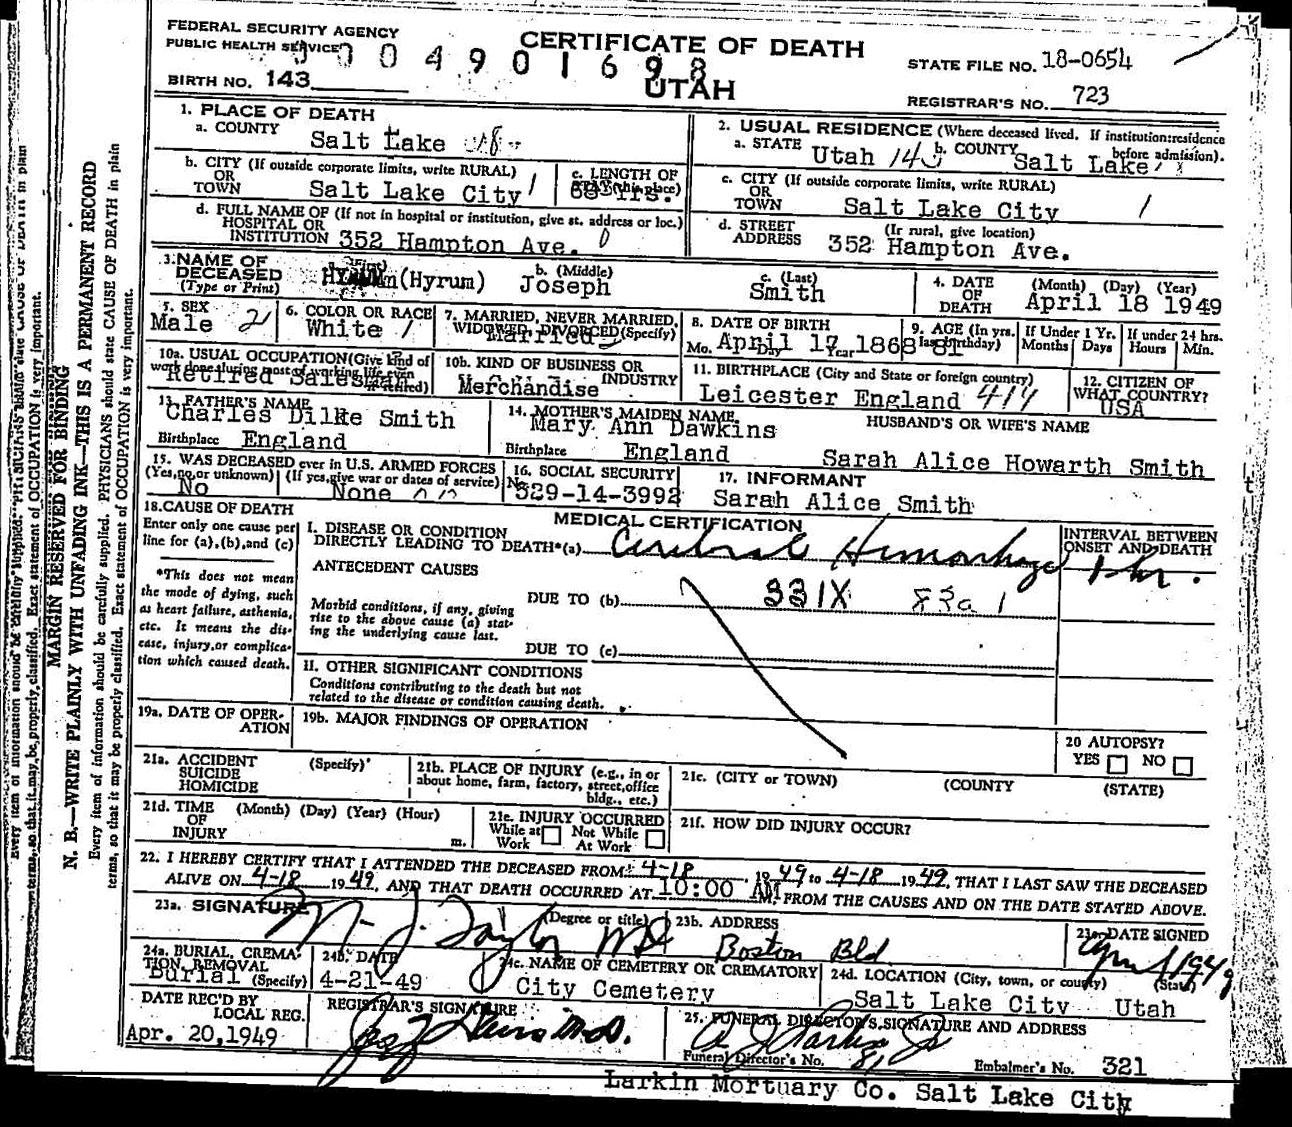 FEDERAL SECURITY AGENCY
PUBLIC HEALTH SERVICE
CERTIFICATE OF DEATH
0 0 4 9 0 1 6 9 8
UTAH
STATE FILE NO. 18-0654
BIRTH NO. 143
REGISTRAR'S NO. 723
1. PLACE OF DEATH
a. COUNTY
Salt Lake
2. USUAL RESIDENCE (Where deceased lived. If institution:residence before admission).
a. STATE Utah 143 b. COUNTY Salt Lake
b. CITY (If outside corporate limits, write RURAL)
OR
TOWN Salt Lake City 1
c. LENGTH OF
STAY (this place)
68 Yrs.
c. CITY (If outside corporate limits, write RURAL)
OR
TOWN Salt Lake City 1
d. FULL NAME OF (If not in hospital or institution, give st. address or loc.)
HOSPITAL OR
INSTITUTION 352 Hampton Ave. 0
d. STREET (If rural, give location)
ADDRESS 352 Hampton Ave.
3. NAME OF
DECEASED
(Type or Print)
(First)
(Hyrum)
b. (Middle)
Joseph
c. (Last)
Smith
4. DATE
OF
DEATH
(Month) (Day) (Year)
April 18 1949
5. SEX
Male 2
6. COLOR OR RACE
White 1
7. MARRIED, NEVER MARRIED,
WIDOWED, DIVORCED (Specify)
Married
8. DATE OF BIRTH
Mo. Day Year
April 17 1868
9. AGE (In yrs.
last birthday)
81
If Under 1 Yr.
Months Days
If under 24 hrs.
Hours Min.
10a. USUAL OCCUPATION (Give kind of
work done during most of working life, even
if retired)
Retired Salesman
10b. KIND OF BUSINESS OR
INDUSTRY
Merchandise
11. BIRTHPLACE (City and State or foreign country)
Leicester England 414
12. CITIZEN OF
WHAT COUNTRY?
USA
13. FATHER'S NAME
Charles Dilke Smith
Birthplace England
14. MOTHER'S MAIDEN NAME
Mary Ann Dawkins
Birthplace England
HUSBAND'S OR WIFE'S NAME
Sarah Alice Howarth Smith
15. WAS DECEASED ever in U.S. ARMED FORCES
(Yes, no, or unknown) (If yes, give war or dates of service)
No None
16. SOCIAL SECURITY
No.
529-14-3992
17. INFORMANT
Sarah Alice Smith
18. CAUSE OF DEATH
Enter only one cause per
line for (a), (b), and (c)
*This does not mean
the mode of dying, such
as heart failure, asthenia,
etc. It means the dis-
ease, injury, or complica-
tion which caused death.
MEDICAL CERTIFICATION
I. DISEASE OR CONDITION
DIRECTLY LEADING TO DEATH*(a) Cerebral Hemorrhage
INTERVAL BETWEEN
ONSET AND DEATH
1 hr.
ANTECEDENT CAUSES
Morbid conditions, if any, giving
rise to the above cause (a) stat-
ing the underlying cause last.
DUE TO (b) 331X 83a 1
DUE TO (c)
II. OTHER SIGNIFICANT CONDITIONS
Conditions contributing to the death but not
related to the disease or condition causing death.
19a. DATE OF OPER-
ATION
19b. MAJOR FINDINGS OF OPERATION
20 AUTOPSY?
YES NO
21a. ACCIDENT (Specify)
SUICIDE
HOMICIDE
21b. PLACE OF INJURY (e.g., in or
about home, farm, factory, street, office
bldg., etc.)
21c. (CITY or TOWN) (COUNTY) (STATE)
21d. TIME (Month) (Day) (Year) (Hour)
OF
INJURY m.
21e. INJURY OCCURRED
While at Work Not While At Work
21f. HOW DID INJURY OCCUR?
22. I HEREBY CERTIFY THAT I ATTENDED THE DECEASED FROM: 4-18, 1949 to 4-18 1949, THAT I LAST SAW THE DECEASED
ALIVE ON 4-18 1949, AND THAT DEATH OCCURRED AT 10:00 AM, FROM THE CAUSES AND ON THE DATE STATED ABOVE.
23a. SIGNATURE (Degree or title)
N. J. Taylor MD
23b. ADDRESS
Boston Bld
23c. DATE SIGNED
April 1949
24a. BURIAL, CREMA-
TION, REMOVAL
(Specify)
Burial
24b. DATE
4-21-49
24c. NAME OF CEMETERY OR CREMATORY
City Cemetery
24d. LOCATION (City, town, or county) (State)
Salt Lake City Utah
DATE REC'D BY
LOCAL REG.
Apr. 20, 1949
REGISTRAR'S SIGNATURE
25. FUNERAL DIRECTOR'S SIGNATURE AND ADDRESS
Funeral Director's No. 81
Embalmer's No. 321
Larkin Mortuary Co. Salt Lake City
MARGIN RESERVED FOR BINDING
N. B.—WRITE PLAINLY WITH UNFADING INK—THIS IS A PERMANENT RECORD
Every item of information should be carefully supplied. PHYSICIANS should state CAUSE OF DEATH in plain
terms, so that it may be properly classified. Exact statement of OCCUPATION is very important.